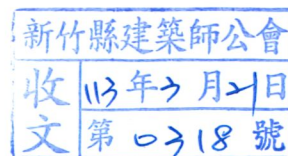 新竹縣建築師公會
收文
113年3月21日
第0318號